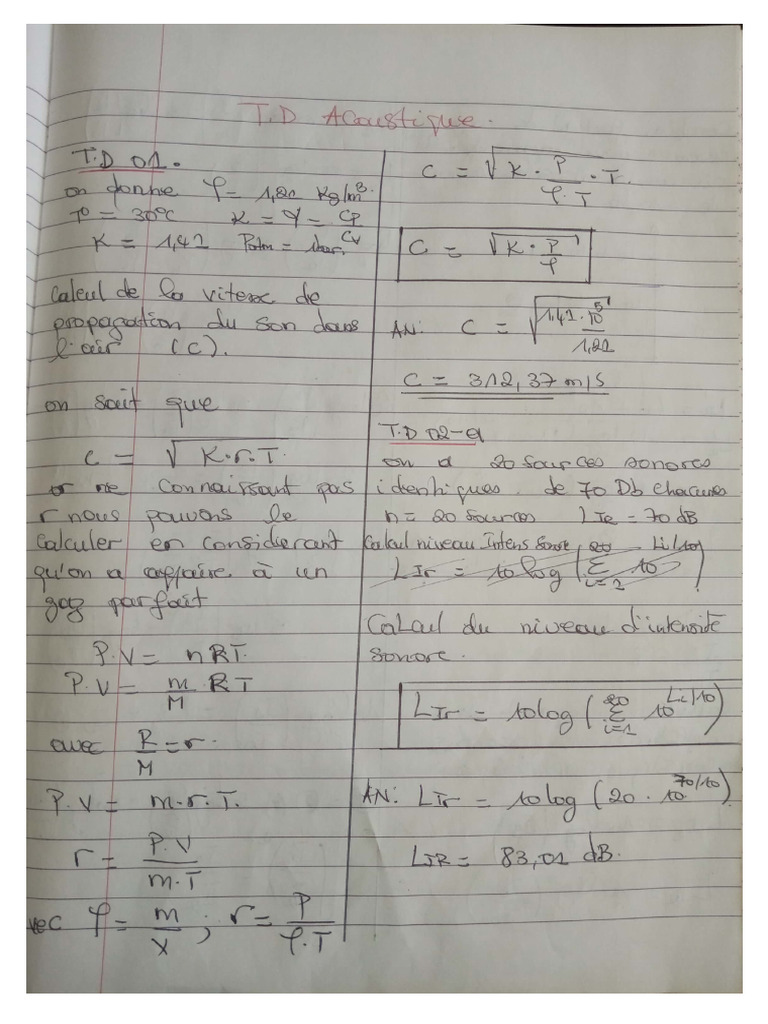 T.D Acoustique.
T.D 01.
on donne φ = 1,21 kg/m³.
T° = 30°C K = γ = Cp/Cv
K = 1,41 Patm = 1bar.
Calcul de la vitesse de
propagation du son dans
l'air (C).
on sait que
c = √K.r.T.
or ne connaissant pas
r nous pouvons le
Calculer en considerant
qu'on a affaire à un
gaz parfait
P.V = nRT.
P.V = m/M RT
avec R/M = r.
P.V = m.r.T.
r = P.V/m.T
vec φ = m/V ; r = P/φ.T
C = √K . P/φ.T . T.
C = √K . P/φ
AN: C = √1,41.10⁵/1,21
C = 312,37 m/s
T.D 02-a
on a 20 sources sonores
identiques. de 70 Db chacunes
n = 20 sources LIe = 70 dB
Calcul niveau Intens Sonore
LIr = 10log(20Σi=1 10^Li/10)
Calcul du niveau d'intensité
sonore.
LIr = 10log(20Σi=1 10^Li/10)
AN: LIr = 10log(20.10^70/10)
LIR = 83,01 dB.